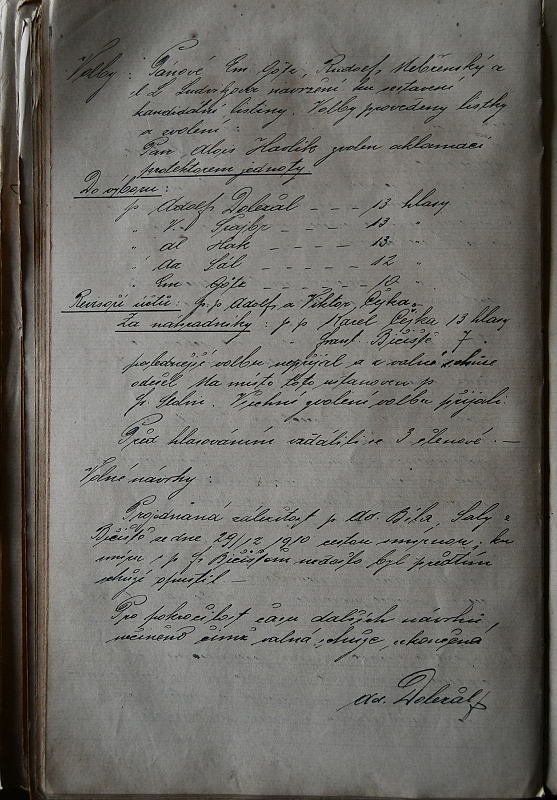 Volby: Pánové Em Götz, Rudolf Nebřenský a
L. Ludvík navrženi ku sestavení
kandidátní listiny. Volby provedeny lístky
a zvoleni:
Pan Alois Havlík zvolen aklamací
protektorem jednoty
Do výboru:
p Adolf Doležal - - - 13 hlasy
" V. Šrajbr - - - 13 "
" al Hak - - - 13 "
" Ad Sál - - - 12 "
" Em Götz - - - 10 "
Revisoři účtů: p. p Adolf a Viktor Čejka.
Za náhradníky: p p Karel Čejka 13 hlasy
Frant. Bičiště 7 "
poslednější volbu nepřijal a z valné schůze
odešel Na místo toto ustanoven p
Fr Stolin. Všichni zvolení volbu přijali.
Před hlasováním vzdálili se 3 členové. —
Volné návrhy:
Projednaná záležitost p Ad. Bíla, Saly a
Bičiště ze dne 29/12 1910 cestou smírnou, ku
smíru s p Fr Bičištěm nedošlo byl předtím
schůzi opustil —
Pro pokročilost času dalších návrhů
učiněno čímž valná schůze ukončená
Ad. Doležal